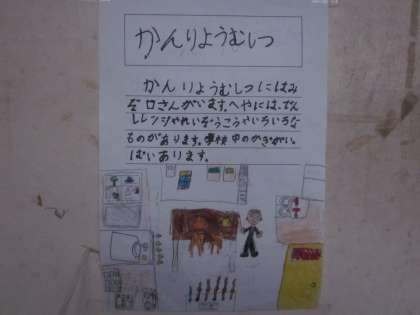 かんりようむしつ
かんりようむしつにはみ
ぞ口さんがいます。へやには、でん
しレンジやれいぞうこうやいろいろな
ものがあります。学校中のかぎがい。
ぱいあります。